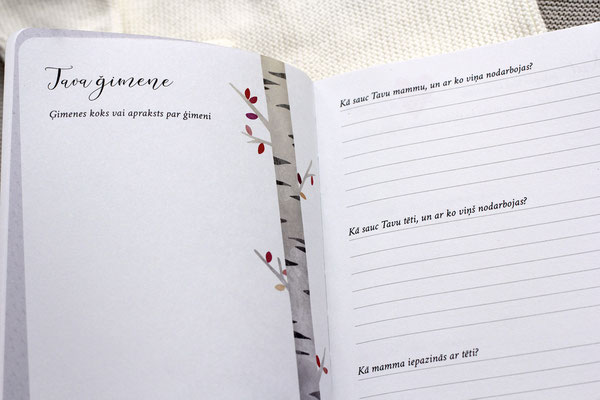 Tava ģimene
Ģimenes koks vai apraksts par ģimeni
Kā sauc Tavu mammu, un ar ko viņa nodarbojas?
Kā sauc Tavu tēti, un ar ko viņš nodarbojas?
Kā mamma iepazinās ar tēti?